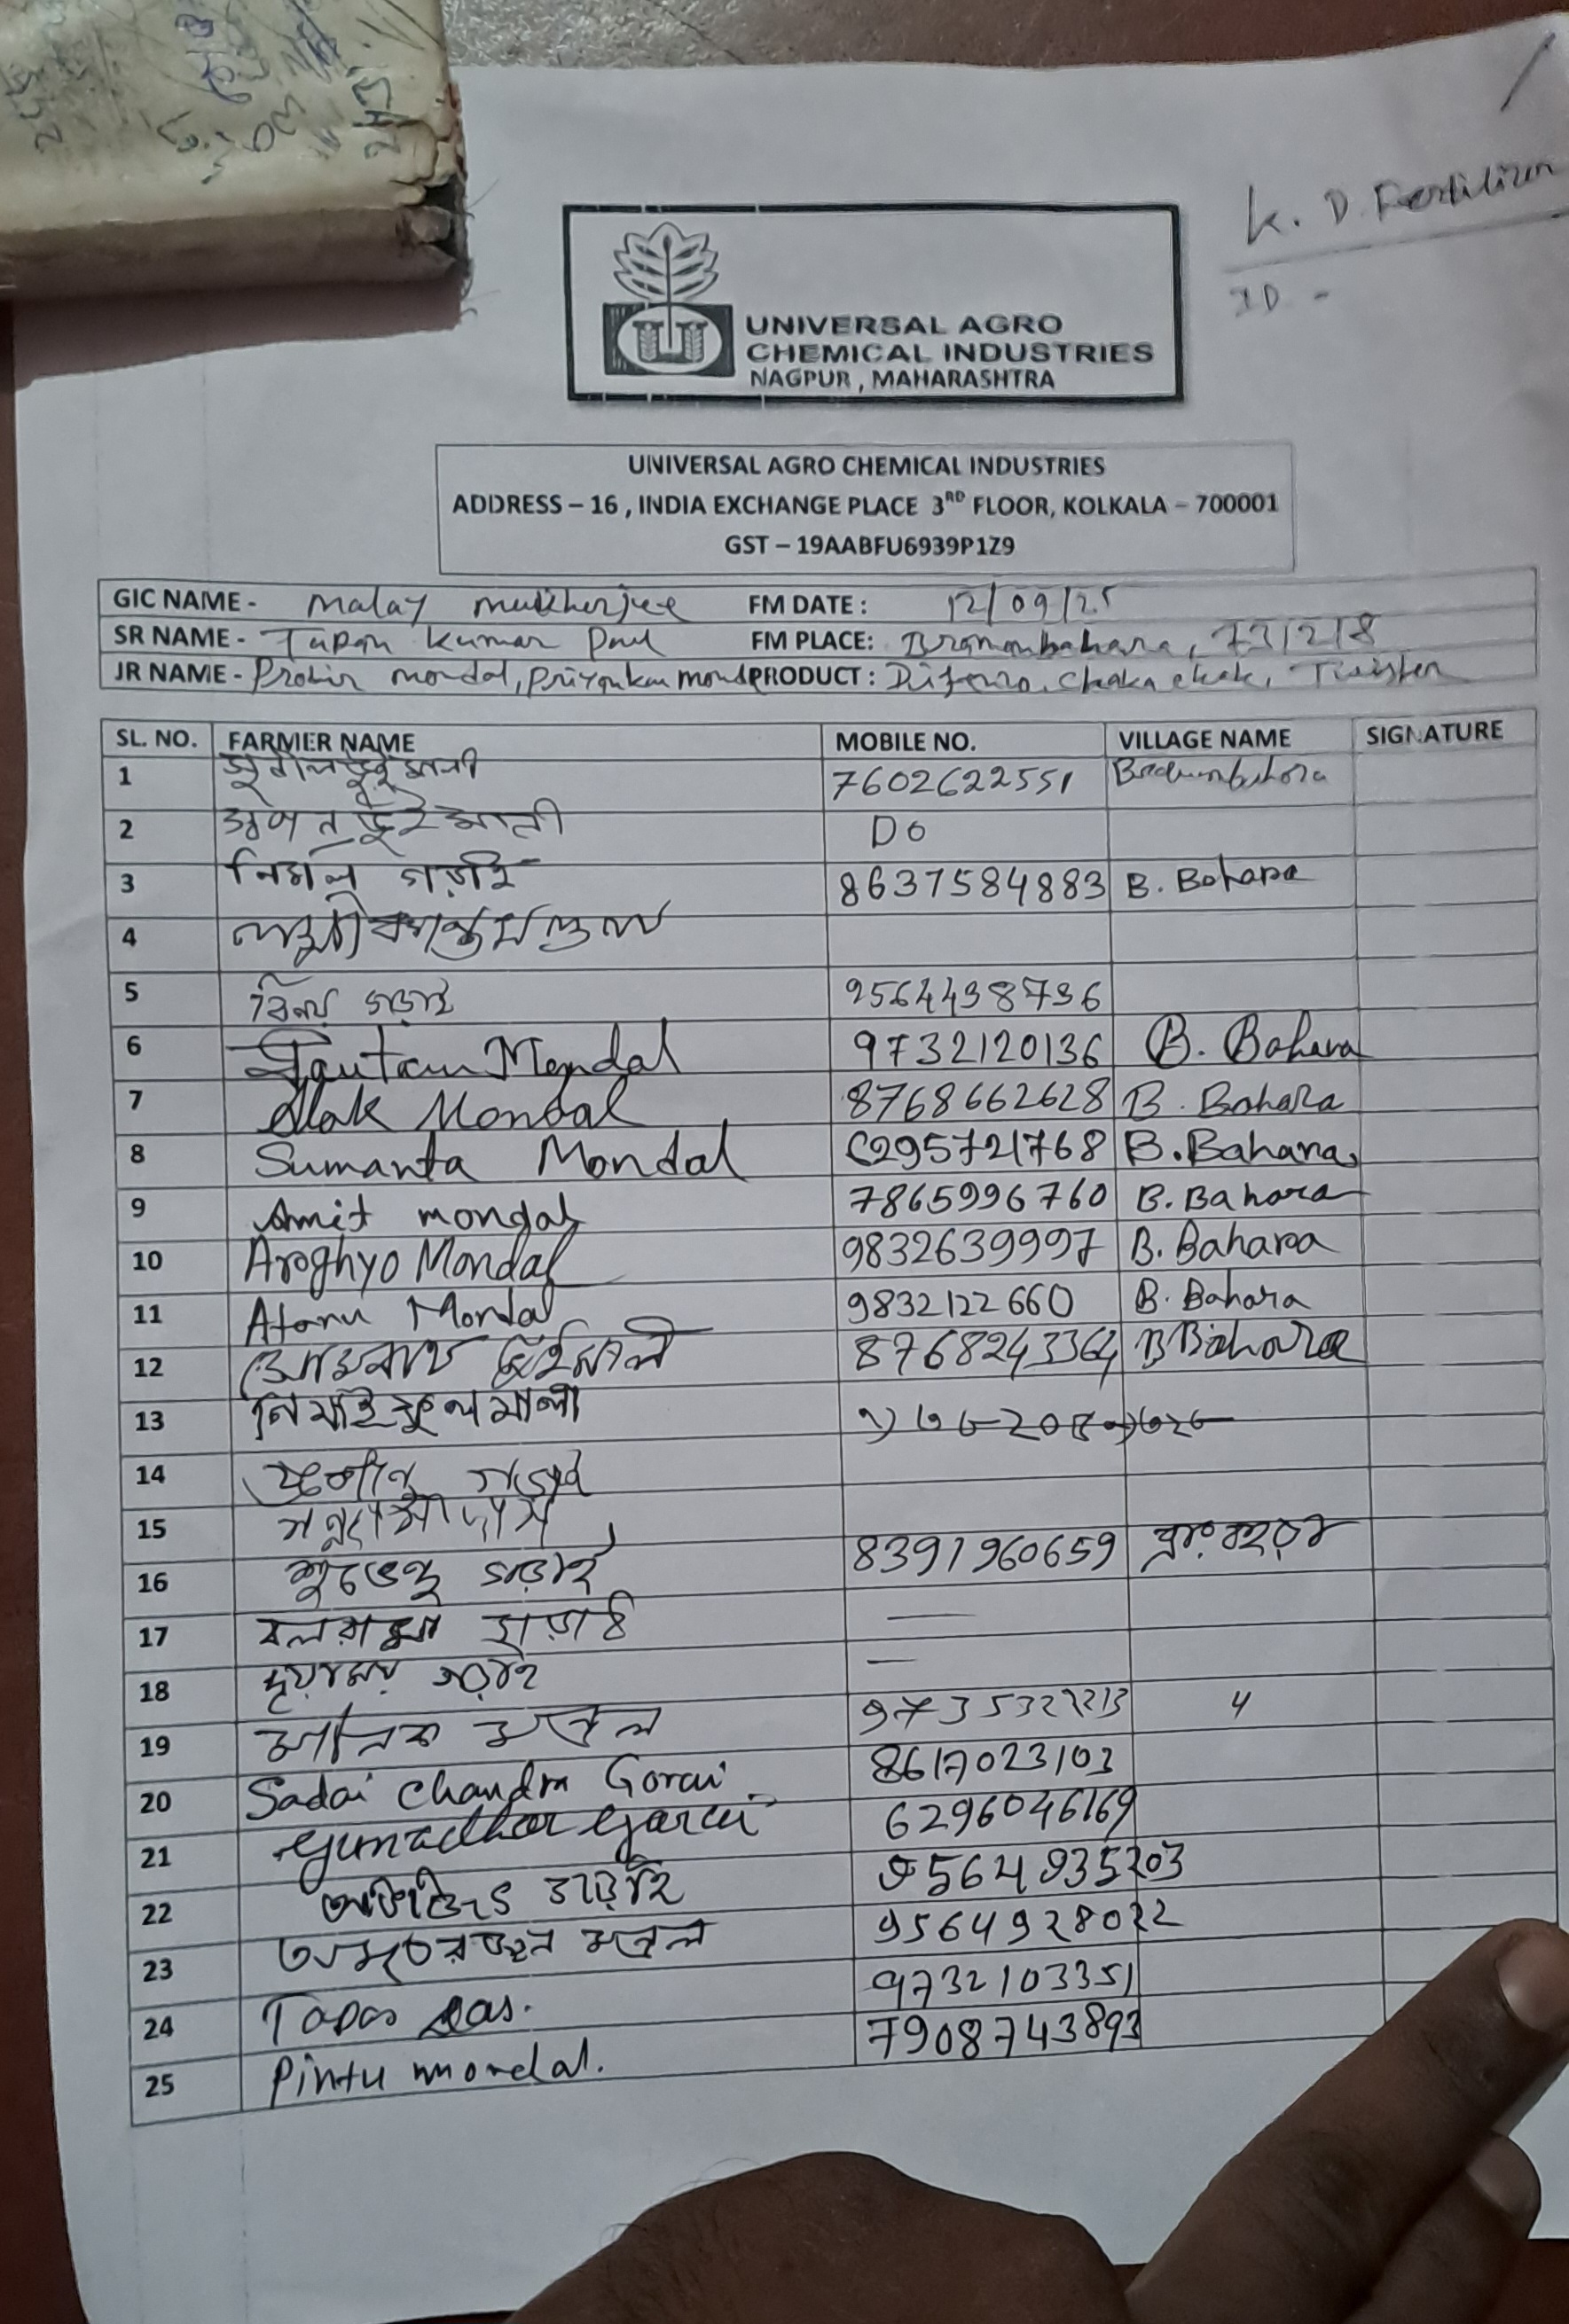 K. D. Fertilizer
ID -
UNIVERSAL AGRO
CHEMICAL INDUSTRIES
NAGPUR , MAHARASHTRA
UNIVERSAL AGRO CHEMICAL INDUSTRIES
ADDRESS – 16 , INDIA EXCHANGE PLACE 3RD FLOOR, KOLKALA – 700001
GST – 19AABFU6939P1Z9
GIC NAME - Malay mukherjee FM DATE : 12/09/25
SR NAME - Tapan Kumar Paul FM PLACE: Bramonbahara, 731218
JR NAME - Probir mondal, Priyankar mondal PRODUCT : Chaka chak, Twister
SL. NO. FARMER NAME MOBILE NO. VILLAGE NAME SIGNATURE
1 7602622551
2 DO
3 নির্মল গড়াই 8637584883 B. Bahara
4 লক্ষ্মীকান্ত মন্ডল
5 বিনয় গড়াই 9564438736
6 Gautam Mondal 9732120136 B. Bahara
7 Alak Mondal 8768662628 B. Bahara
8 Sumanta Mondal 6295721768 B. Bahara
9 Amit mondal 7865996760 B. Bahara
10 Aroghyo Mondal 9832639997 B. Bahara
11 Atanu Mondal 9832122660 B. Bahara
12 B Bahara
13 নিমাই ফুলমালী
14 গড়াই
15
16 শুভেন্দু গড়াই 8391960659
17 বলরাম গড়াই —
18 দয়াময় গড়াই —
19 মানিক মন্ডল 4
20 Sadai Chandra Gorai 8617023103
21 Gunadhar Garai 6296046169
22 অভিজিৎ গড়াই 9564935203
23 মন্ডল 9564928022
24 Tapas Das. 9732103351
25 Pintu mondal. 7908743893